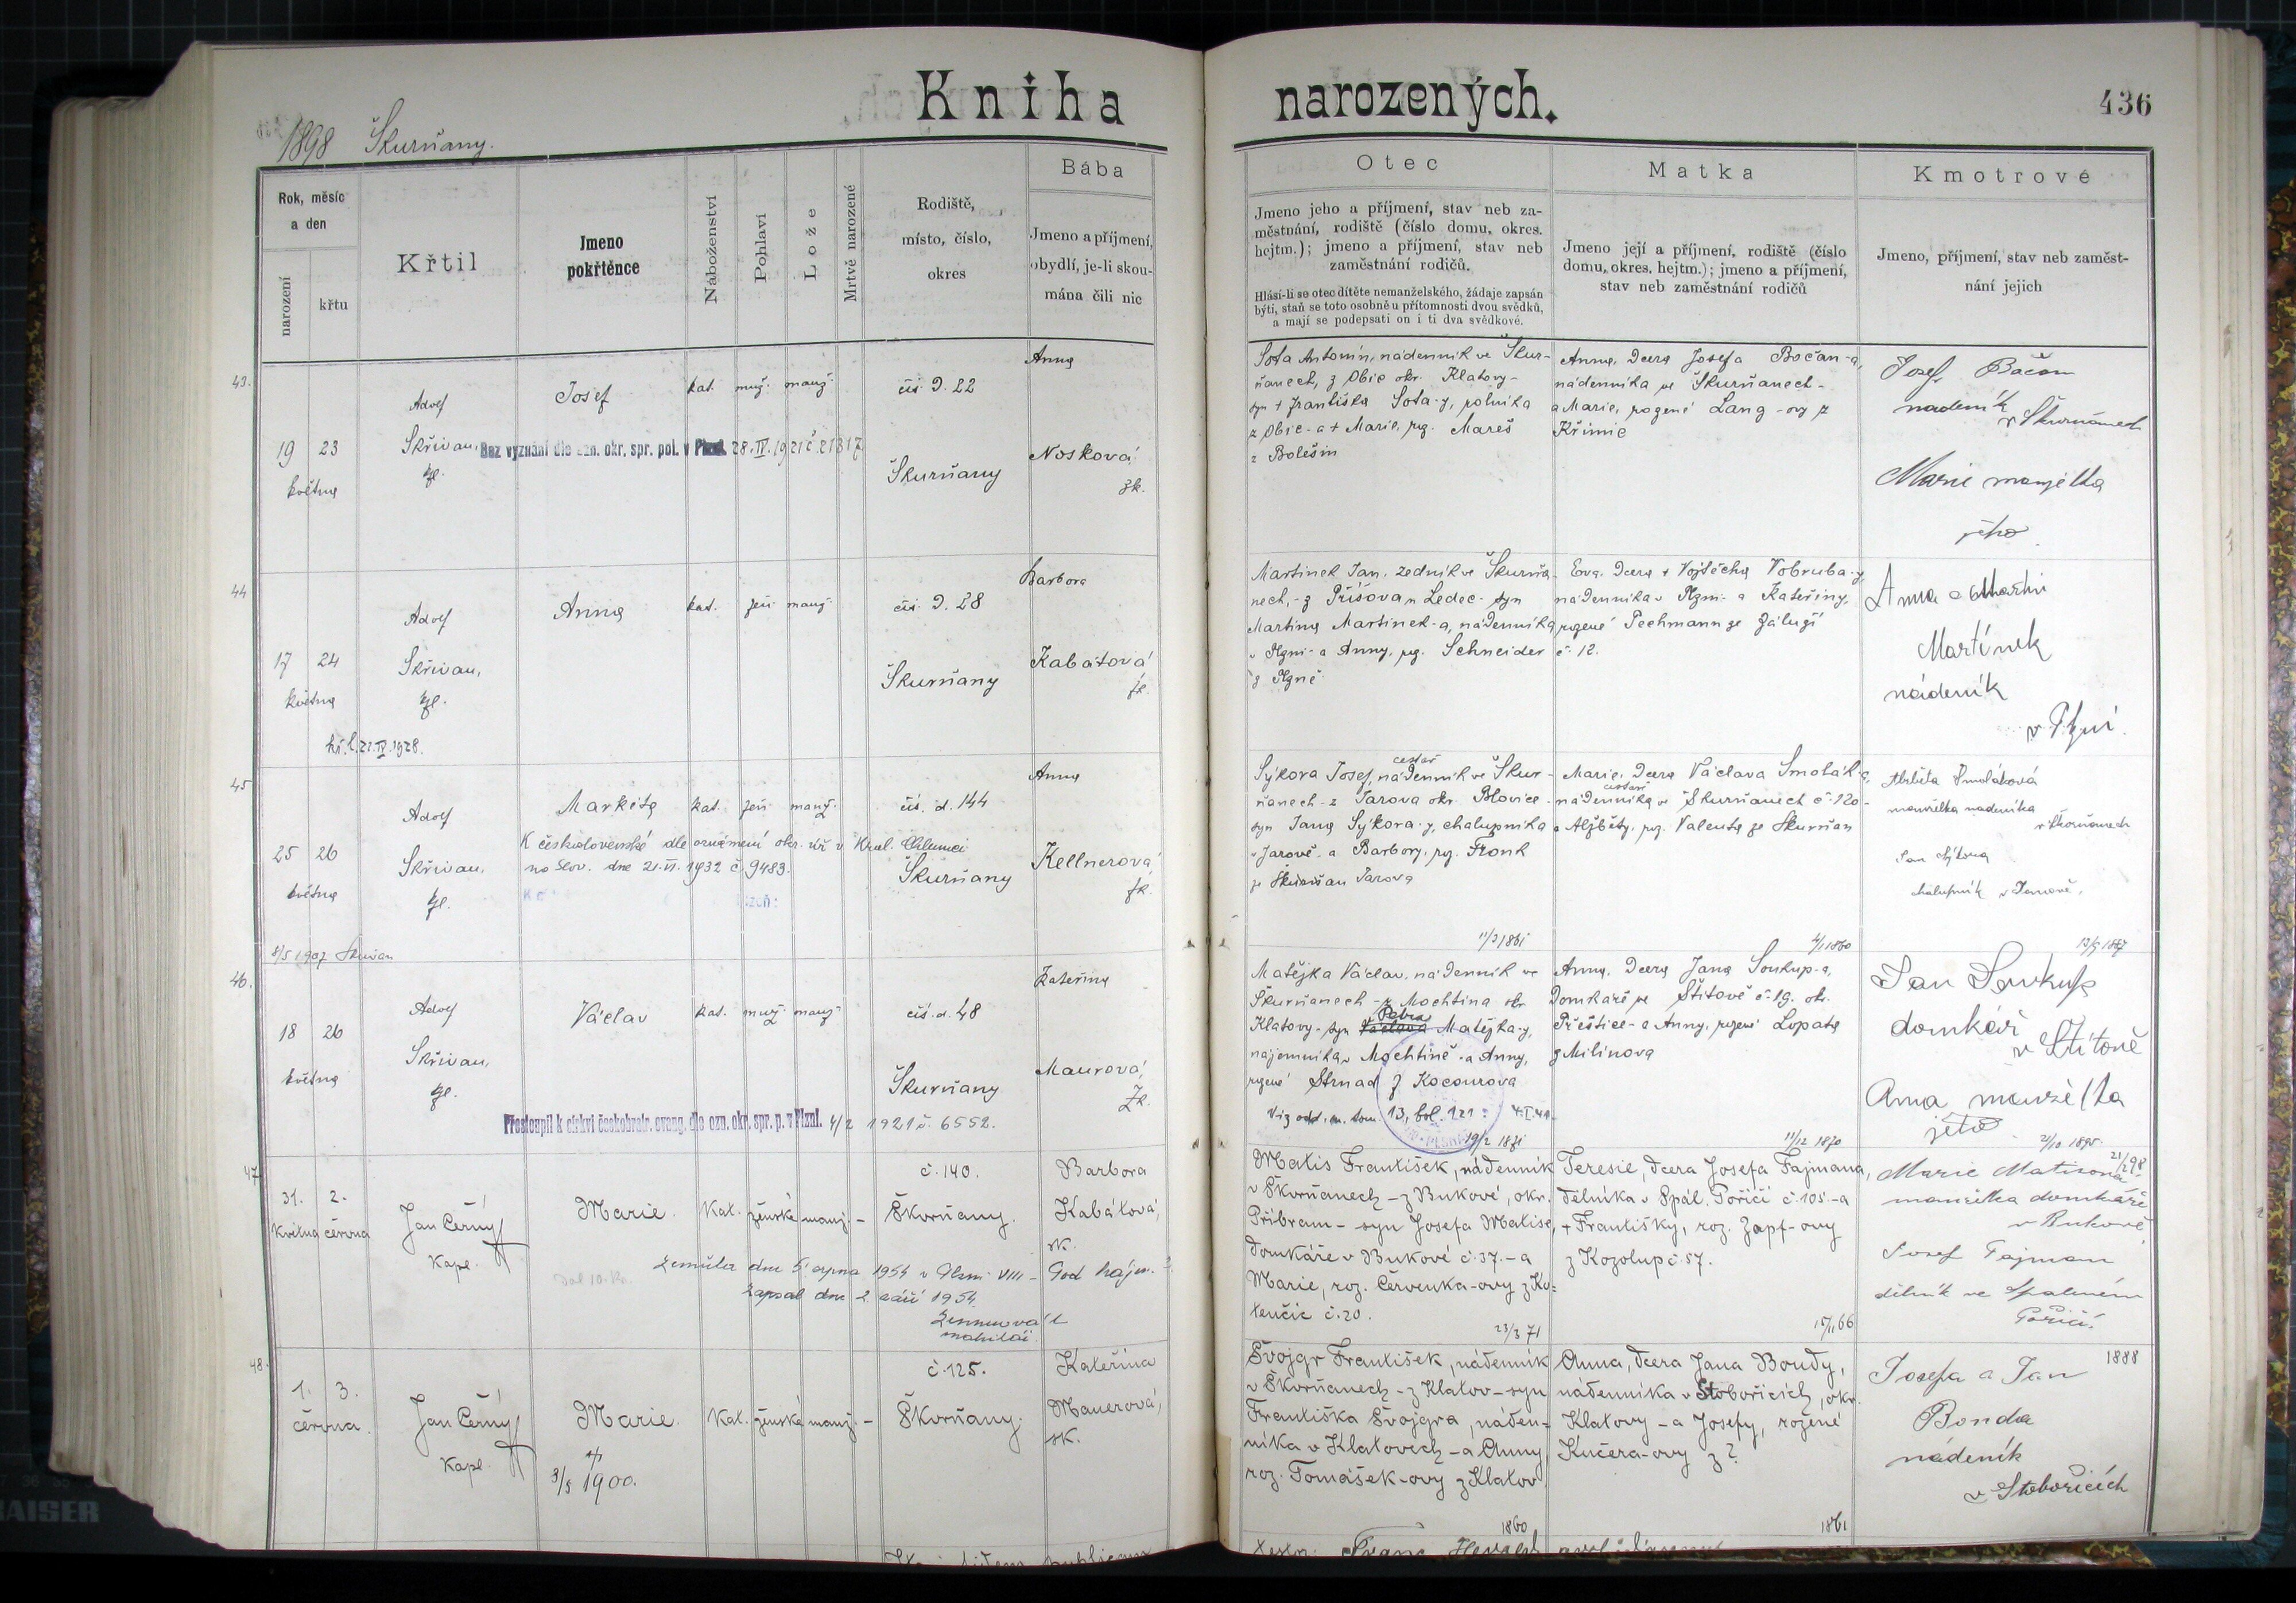 Kniha narozených.
436
1898 Škurňany.
Rok, měsíc
a den
narození
křtu
Křtil
Jmeno
pokřtěnce
Náboženství
Pohlaví
Lože
Mrtvě narozené
Rodiště,
místo, číslo,
okres
Bába
Jmeno a příjmení,
obydlí, je-li skou-
mána čili nic
Otec
Jmeno jeho a příjmení, stav neb za-
městnání, rodiště (číslo domu, okres.
hejtm.); jmeno a příjmení, stav neb
zaměstnání rodičů.
Hlásí-li se otec dítěte nemanželského, žádaje zapsán
býti, staň se toto osobně u přítomnosti dvou svědků,
a mají se podepsati on i ti dva svědkové.
Matka
Jmeno její a příjmení, rodiště (číslo
domu, okres. hejtm.); jmeno a příjmení,
stav neb zaměstnání rodičů
Kmotrové
Jmeno, příjmení, stav neb zaměst-
nání jejich
43.
19 23
května
Adolf
Skřivan,
Josef
kat. muž. manž.
čís. D. 22
Škurňany
Anna
Nosková
zk.
Bez vyznání dle ozn. okr. spr. pol. v Plzni. 28. IV. 1921 č. 21317
Sota Antonín, nádenník ve Škur-
ňanech, z Obic okr. Klatovy-
syn + Františka Sota-y, rolníka
z Obic - a + Marie, roz. Mareš
z Bolešin
Anna, dcera Josefa Bočan-a,
nádenníka ve Škurňanech -
a Marie, rozené Lang-ovy z
Křimic
Josef Bočan
nadeník
v Škurňanech
Marie manželka
jeho
44
17 24
května
kř. l. 21. IV. 1928.
Adolf
Skřivan,
Anna
kat. žen. manž.
čís. D. 28
Škurňany
Barbora
Kabátová
zk.
Martinek Jan, zedník ve Škurňa-
nech, - z Příšova n Ledec - syn
Martina Martinek-a, nádenníka
v Plzni - a Anny, roz. Schneider
z Plzně
Eva, dcera + Vojtěcha Vobruba-y,
nádenníka v Plzni - a Kateřiny,
rozené Pechmann ze Záluží
č. 12.
Anna a Martin
Martínek
nádeník
v Plzni.
45
25 26
května
8/5 1907
Adolf
Skřivan,
Markéta
kat. žen. manž.
čís. d. 144
Škurňany
Anna
Kellnerová,
zk.
K československé dle oznámení okr. úř. v Král. Chlumci
na Slov. dne 21. VI. 1932 č. 9483.
cestář
Sýkora Josef, nádenník ve Škur-
ňanech - z Jarova okr. Blovice -
syn Jana Sýkora-y, chalupníka
v Jarově - a Barbory, roz. Fronk
ze Škurňan Jarova
Marie, dcera Václava Smolák-a,
cestáře
nádenníka ve Škurňanech č. 120 -
a Alžběty, roz. Valenta ze Škurňan
Alžběta Smoláková
manželka nadeníka
v Škurňanech
Jan Sýkora
chalupník v Jarově.
46.
18 26
května
Adolf
Skřivan,
Václav
kat. muž. manž.
čís. d. 48
Škurňany
Kateřina
Maurová,
zk.
Přestoupil k církvi českobratr. evang. dle ozn. okr. spr. p. v Plzni. 4/2 1921 č. 6552.
11/3 1861
Matějka Václav, nádenník ve
Škurňanech - z Mochtína okr.
Petra
Klatovy - syn Václava Matějka-y,
nájemníka v Mochtíně - a Anny,
rozené Strnad z Kocourova
Viz odd. m. tom. 13, fol. 121:
4/1 1860
Anna, dcera Jana Soukup-a,
domkáře ve Štítově č. 19. okr.
Přeštice - a Anny, rozené Lopata
z Milínova
13/5 1887
Jan Soukup
domkář
v Štítově
Anna manželka
jeho
47
31. 2.
Května června
Jan Černý
Kapl.
Marie.
Kat. ženské manž. -
č. 140.
Škvrňany.
Barbora
Kabátová,
zk.
Zemřela dne 5. srpna 1954 v Plzni VIII -
Zapsal dne 2. září 1954.
19/2 1871
Matis František, nádenník
v Škvrňanech - z Bukové, okr.
Příbram - syn Josefa Matise,
domkáře v Bukové č. 37. - a
Marie, roz. Červenka-ovy z Ko=
tenčic č. 20.
11/12 1870
Teresie, dcera Josefa Fajmana,
dělníka v Spál. Poříčí č. 105 - a
+ Františky, roz. Zapf-ovy
z Kozolup č. 57.
21/10 1895.
21/2 98
Marie Matisova
manželka domkáře
v Bukové
Josef Fajman
dělník ve Spaleném
Poříčí.
48.
1. 3.
června.
Jan Černý
Kapl.
Marie.
3/5 1900.
Kat. ženské manž. -
č. 125.
Škvrňany.
Kateřina
Mauerová,
zk.
23/3 71
Švojgr František, nádenník
v Škvrňanech - z Klatov - syn
Františka Švojgra, náden-
níka v Klatovech - a Anny,
roz. Tomášek-ovy z Klatov.
15/11 66
Anna, dcera Jana Boudy,
nádenníka v Stobořicích, okr.
Klatovy - a Josefy, rozené
Kučera-ovy z?
1888
Josefa a Jan
Bouda
nádeník
v Stobořicích
1860
1861